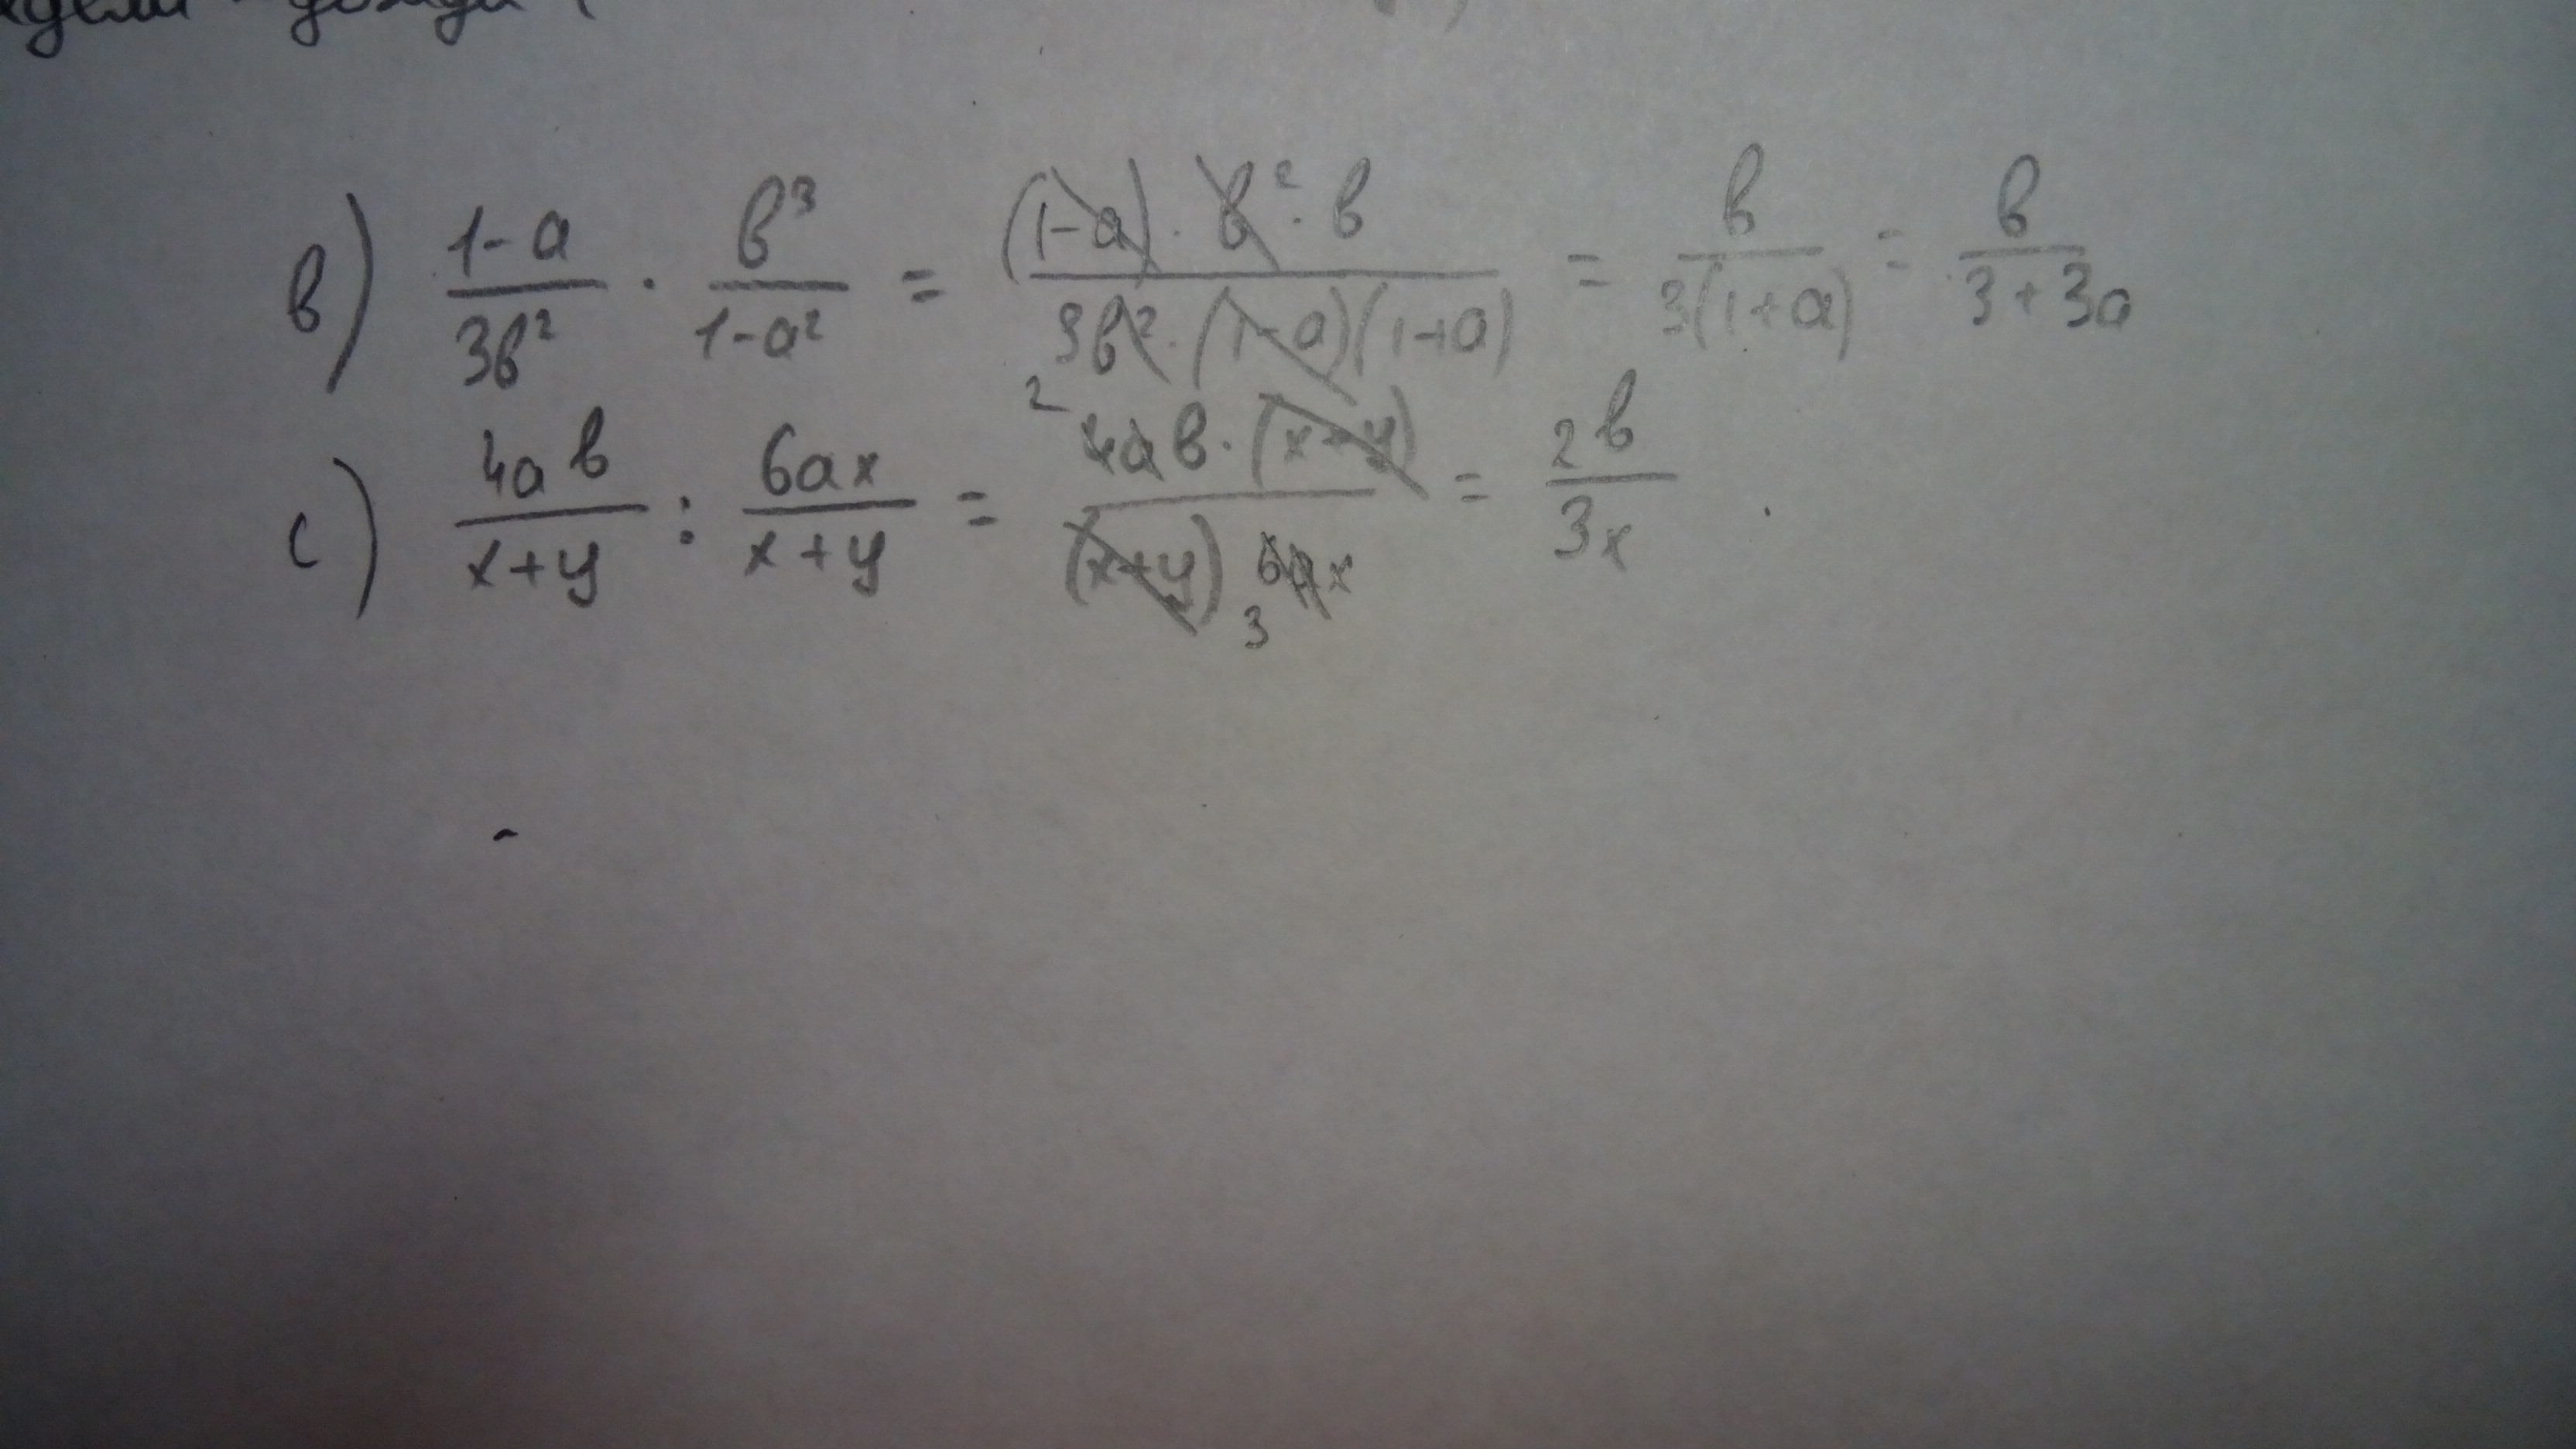 b) (1-a)/(3b²) · b³/(1-a²) = ((1-a) · b² · b)/(3b² · (1-a)(1+a)) = b/(3(1+a)) = b/(3+3a)
c) (4ab)/(x+y) : (6ax)/(x+y) = (2 4ab · (x+y))/((x+y) 3 6ax) = (2b)/(3x)